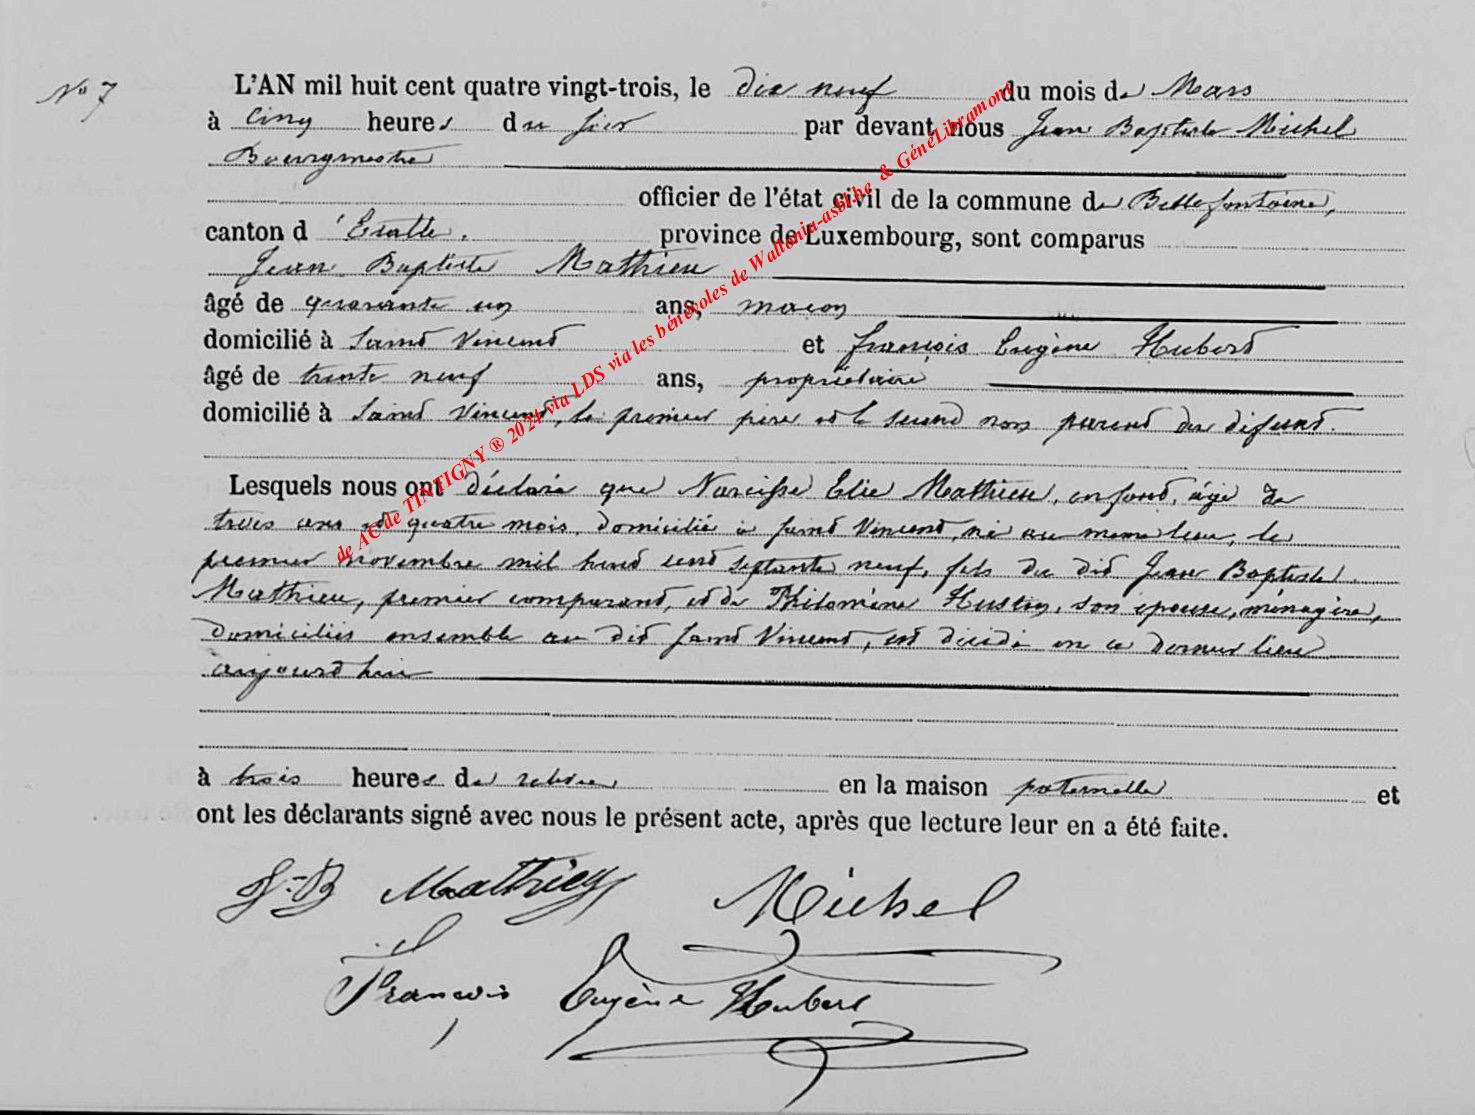 No 7
L'AN mil huit cent quatre vingt-trois, le dix neuf du mois de Mars
à cinq heures du soir par devant nous Jean Baptiste Michel
Bourgmestre
officier de l'état civil de la commune de Bellefontaine,
canton d'Etalle. province de Luxembourg, sont comparus
Jean Baptiste Mathieu
âgé de quarante un ans, maçon
domicilié à Saint Vincent et françois Eugène Hubert
âgé de trente neuf ans, propriétaire
domicilié à Saint Vincent, le premier père et le second non parent du défunt.
Lesquels nous ont déclaré que Narcisse Elie Mathieu, enfant, âgé de
trois ans et quatre mois, domicilié à Saint Vincent, né au meme lieu, le
premier novembre mil huit cent septante neuf, fils du dit Jean Baptiste
Mathieu, premier comparant, et de Philomène Hustin, son épouse, ménagère,
domiciliés ensemble au dit Saint Vincent, est décédé en ce dernier lieu
aujourd'hui
à trois heures de relevée en la maison paternelle et
ont les déclarants signé avec nous le présent acte, après que lecture leur en a été faite.
J-B Mathieu Michel
François Eugène Hubert
de AC de TINTIGNY ® 2024 via LDS via les bénévoles de Wallonia-asbl.be & GénéLibramont